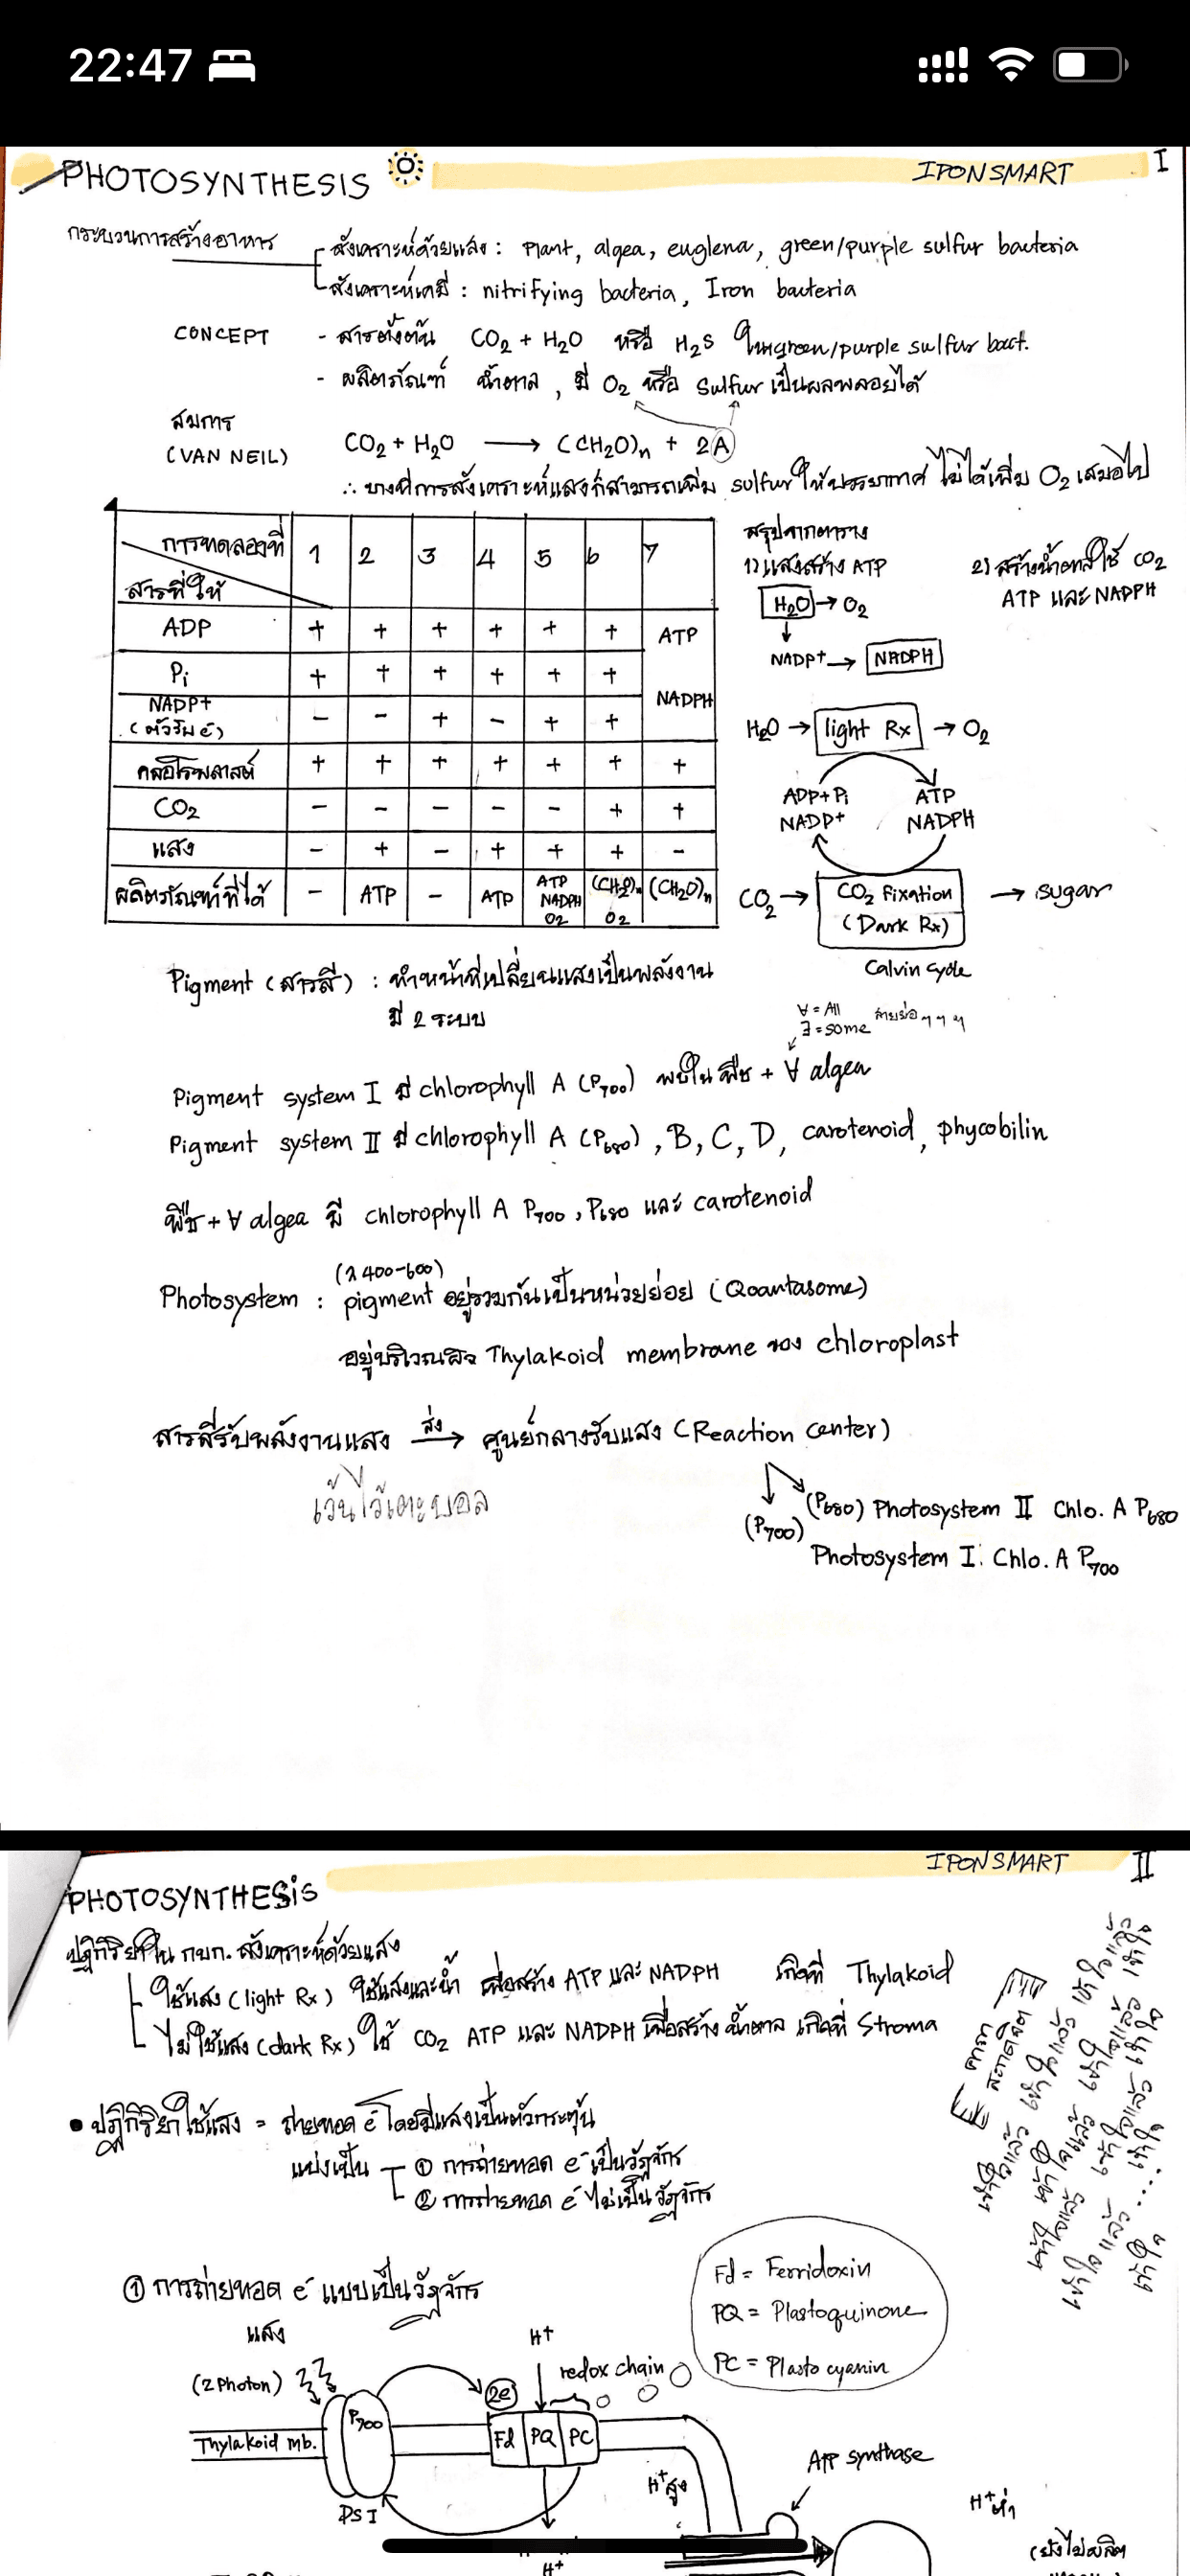 22:47
PHOTOSYNTHESIS
IPONSMART I
กระบวนการสร้างอาหาร
สังเคราะห์ด้วยแสง : Plant, algea, euglena, green/purple sulfur bacteria
สังเคราะห์เคมี : nitrifying bacteria, Iron bacteria
CONCEPT - สารตั้งต้น CO2 + H2O หรือ H2S ในgreen/purple sulfur bact.
- ผลิตภัณฑ์ น้ำตาล, มี O2 หรือ Sulfur เป็นผลพลอยได้
สมการ
(VAN NEIL) CO2 + H2O → (CH2O)n + 2A
∴ บางทีการสังเคราะห์แสงก็สามารถเพิ่ม sulfur ให้บรรยากาศ ไม่ได้เพิ่ม O2 เสมอไป
การทดลองที่ 1 2 3 4 5 6 7
สารที่ให้
ADP + + + + + + ATP
Pi + + + + + +
NADP+ - - + - + + NADPH
(ตัวรับ e)
คลอโรพลาสต์ + + + + + + +
CO2 - - - - - + +
แสง - + - + + + -
ผลิตภัณฑ์ที่ได้ - ATP - ATP ATP NADPH O2 (CH2O)n O2 (CH2O)n
สรุปจากตาราง
1) แสงสร้าง ATP
H2O → O2
NADP+ → NADPH
2) สร้างน้ำตาลใช้ CO2
ATP และ NADPH
H2O → light Rx → O2
ADP+Pi ATP
NADP+ NADPH
CO2 → CO2 Fixation → sugar
(Dark Rx)
Calvin cycle
Pigment (สารสี) : ทำหน้าที่เปลี่ยนแสงเป็นพลังงาน
มี 2 ระบบ
∀ = All
∃ = some
Pigment system I มี chlorophyll A (P700) พบใน พืช + ∀ algea
Pigment system II มี chlorophyll A (P680), B, C, D, carotenoid, phycobilin
พืช + ∀ algea มี chlorophyll A P700, P680 และ carotenoid
(λ 400-600)
Photosystem : pigment อยู่รวมกันเป็นหน่วยย่อย (Qoantasome)
อยู่บริเวณผิว Thylakoid membrane ของ chloroplast
สารสีรับพลังงานแสง ส่ง → ศูนย์กลางรับแสง (Reaction center)
เว้นไว้เตะบอล
(P680) Photosystem II Chlo. A P680
(P700)
Photosystem I : Chlo. A P700
IPONSMART II
PHOTOSYNTHESiS
ปฏิกิริยาใน กบก. สังเคราะห์ด้วยแสง
ใช้แสง (light Rx) ใช้แสงและน้ำ เพื่อสร้าง ATP และ NADPH เกิดที่ Thylakoid
ไม่ใช้แสง (dark Rx) ใช้ CO2 ATP และ NADPH เพื่อสร้าง น้ำตาล เกิดที่ Stroma
คาถา
สะกดจิต
• ปฏิกิริยาใช้แสง = ถ่ายทอด e- โดยมีแสงเป็นตัวกระตุ้น
แบ่งเป็น ① การถ่ายทอด e- เป็นวัฏจักร
② การถ่ายทอด e- ไม่เป็นวัฏจักร
① การถ่ายทอด e- แบบเป็นวัฏจักร
Fd = Ferridoxin
PQ = Plastoquinone
PC = Plasto cyanin
แสง
(2 Photon)
H+
redox chain
2e-
P700
Thylakoid mb.
Fd PQ PC
PS I
H+สูง
ATP synthase
H+ต่ำ
H+